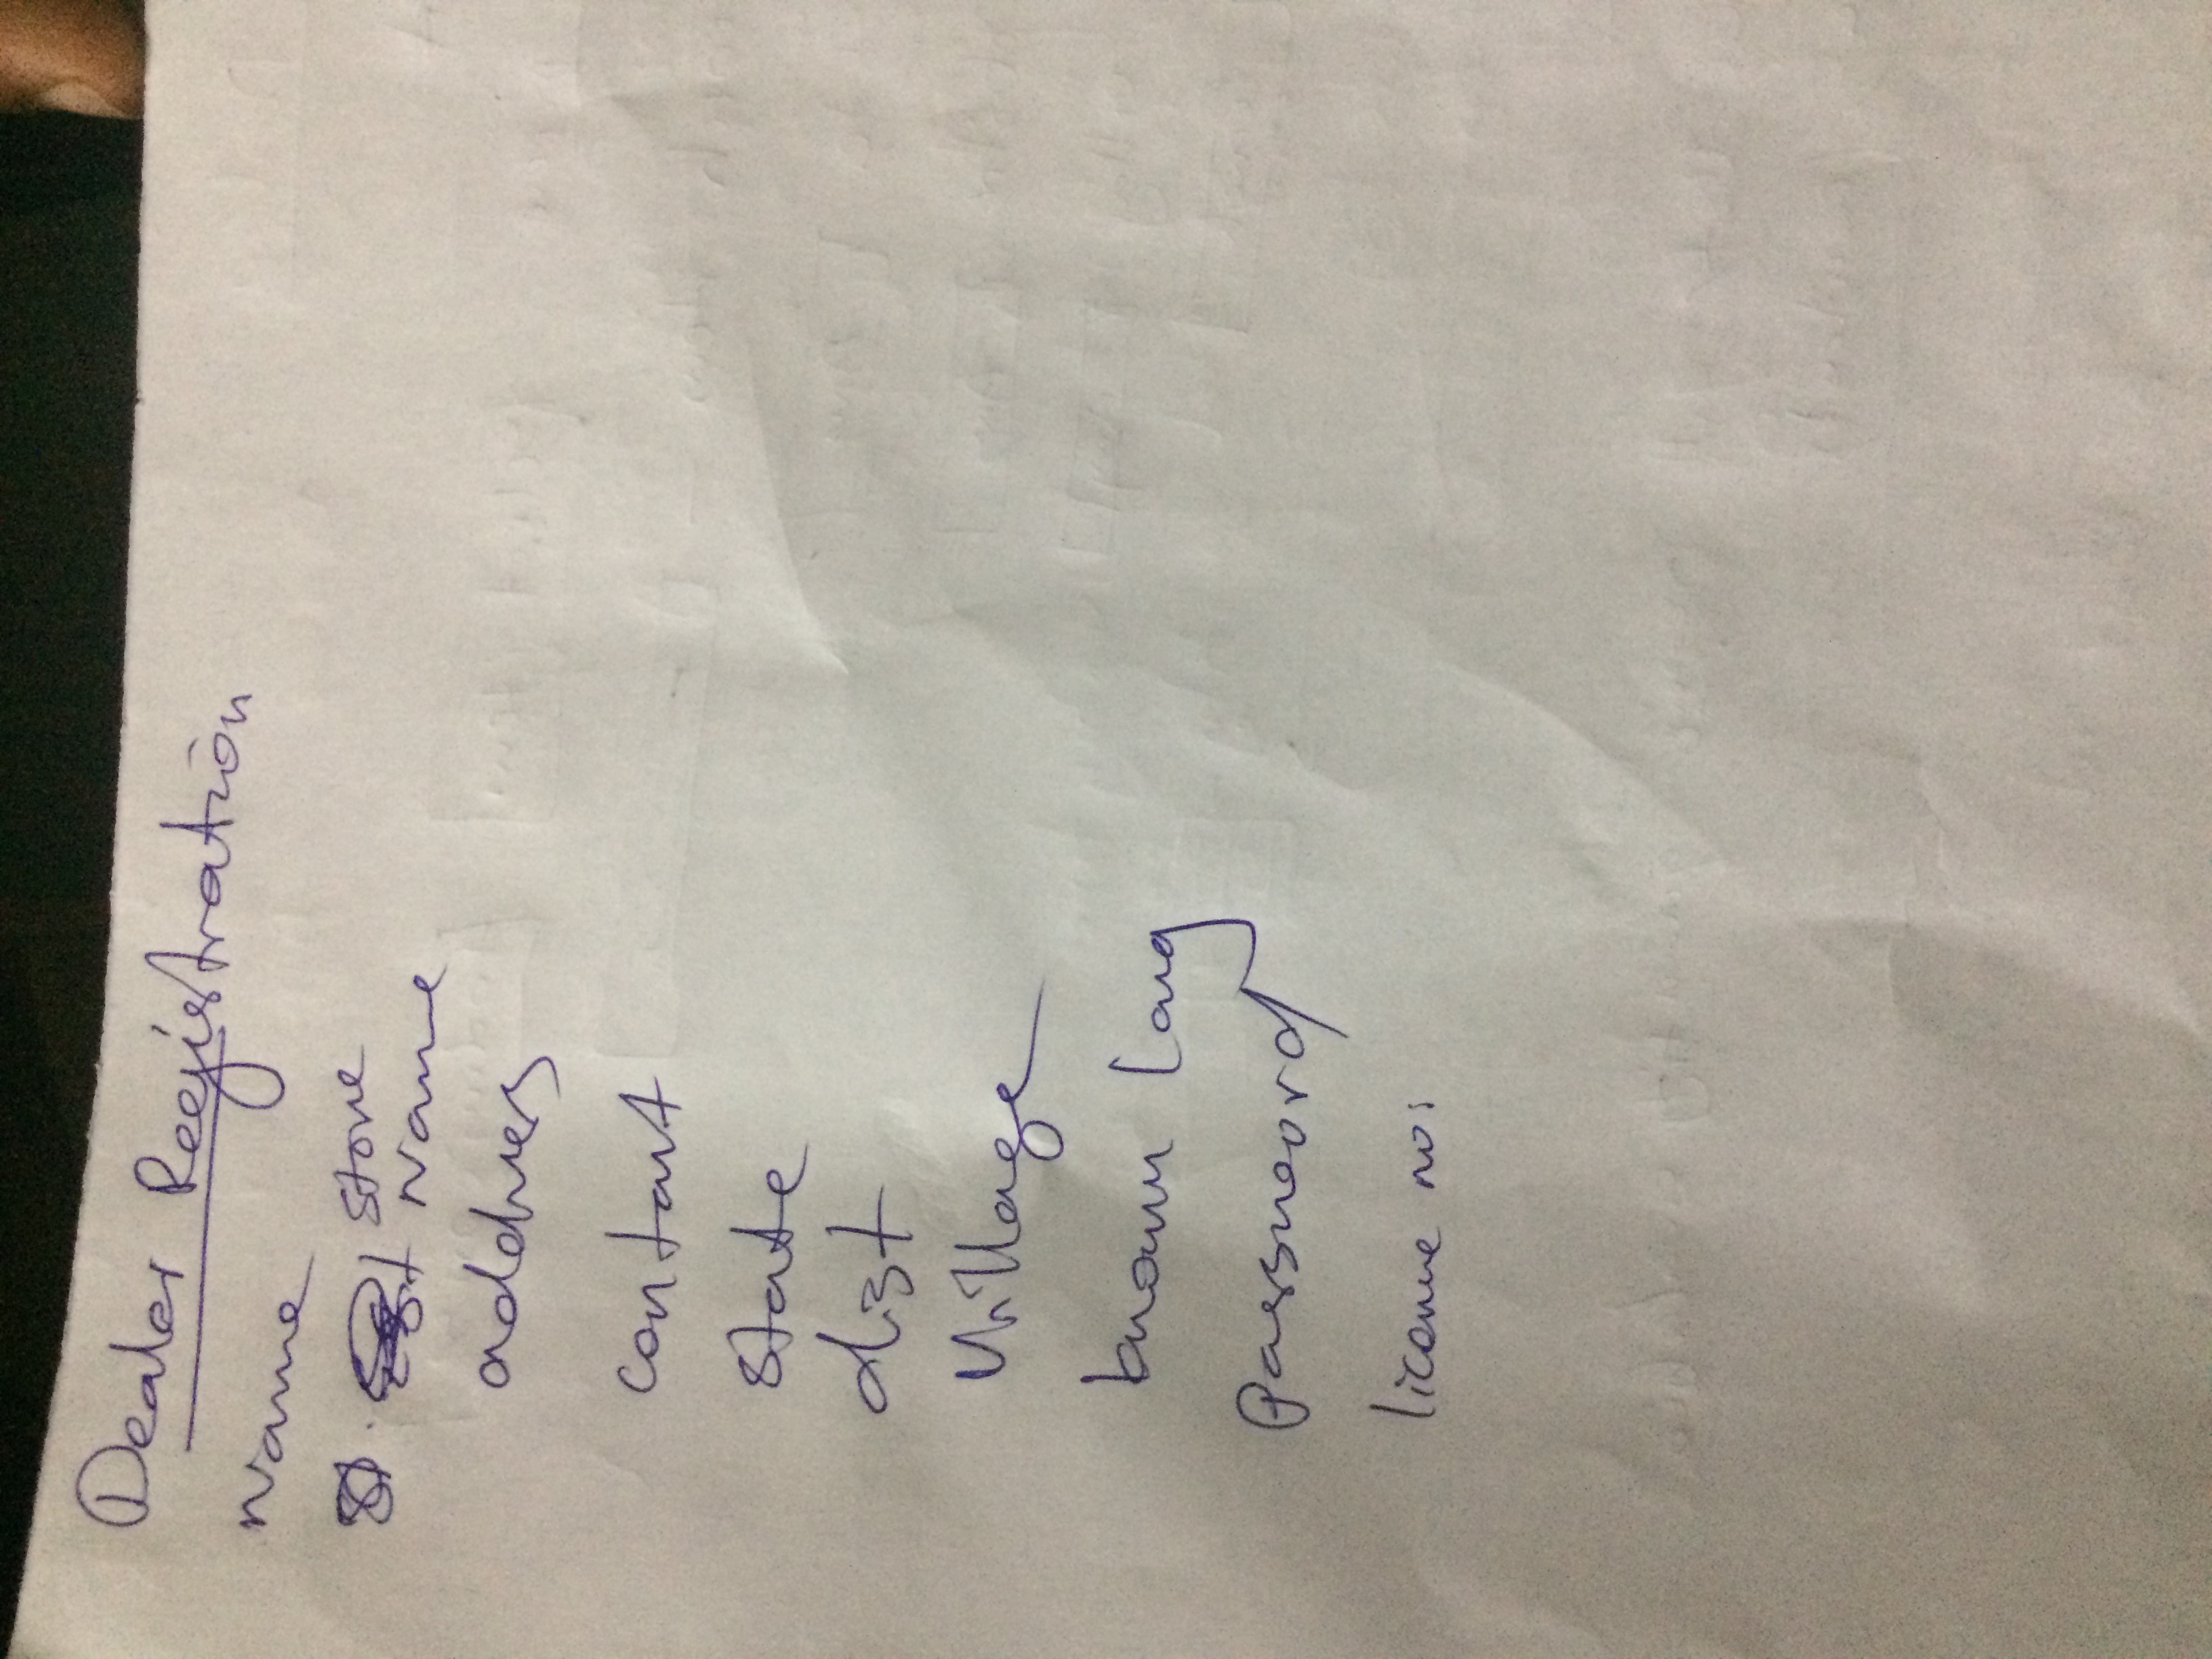 Dealer Registration
Name
store
Name
address
contact
state
dist
Village
known lang
password
license no: